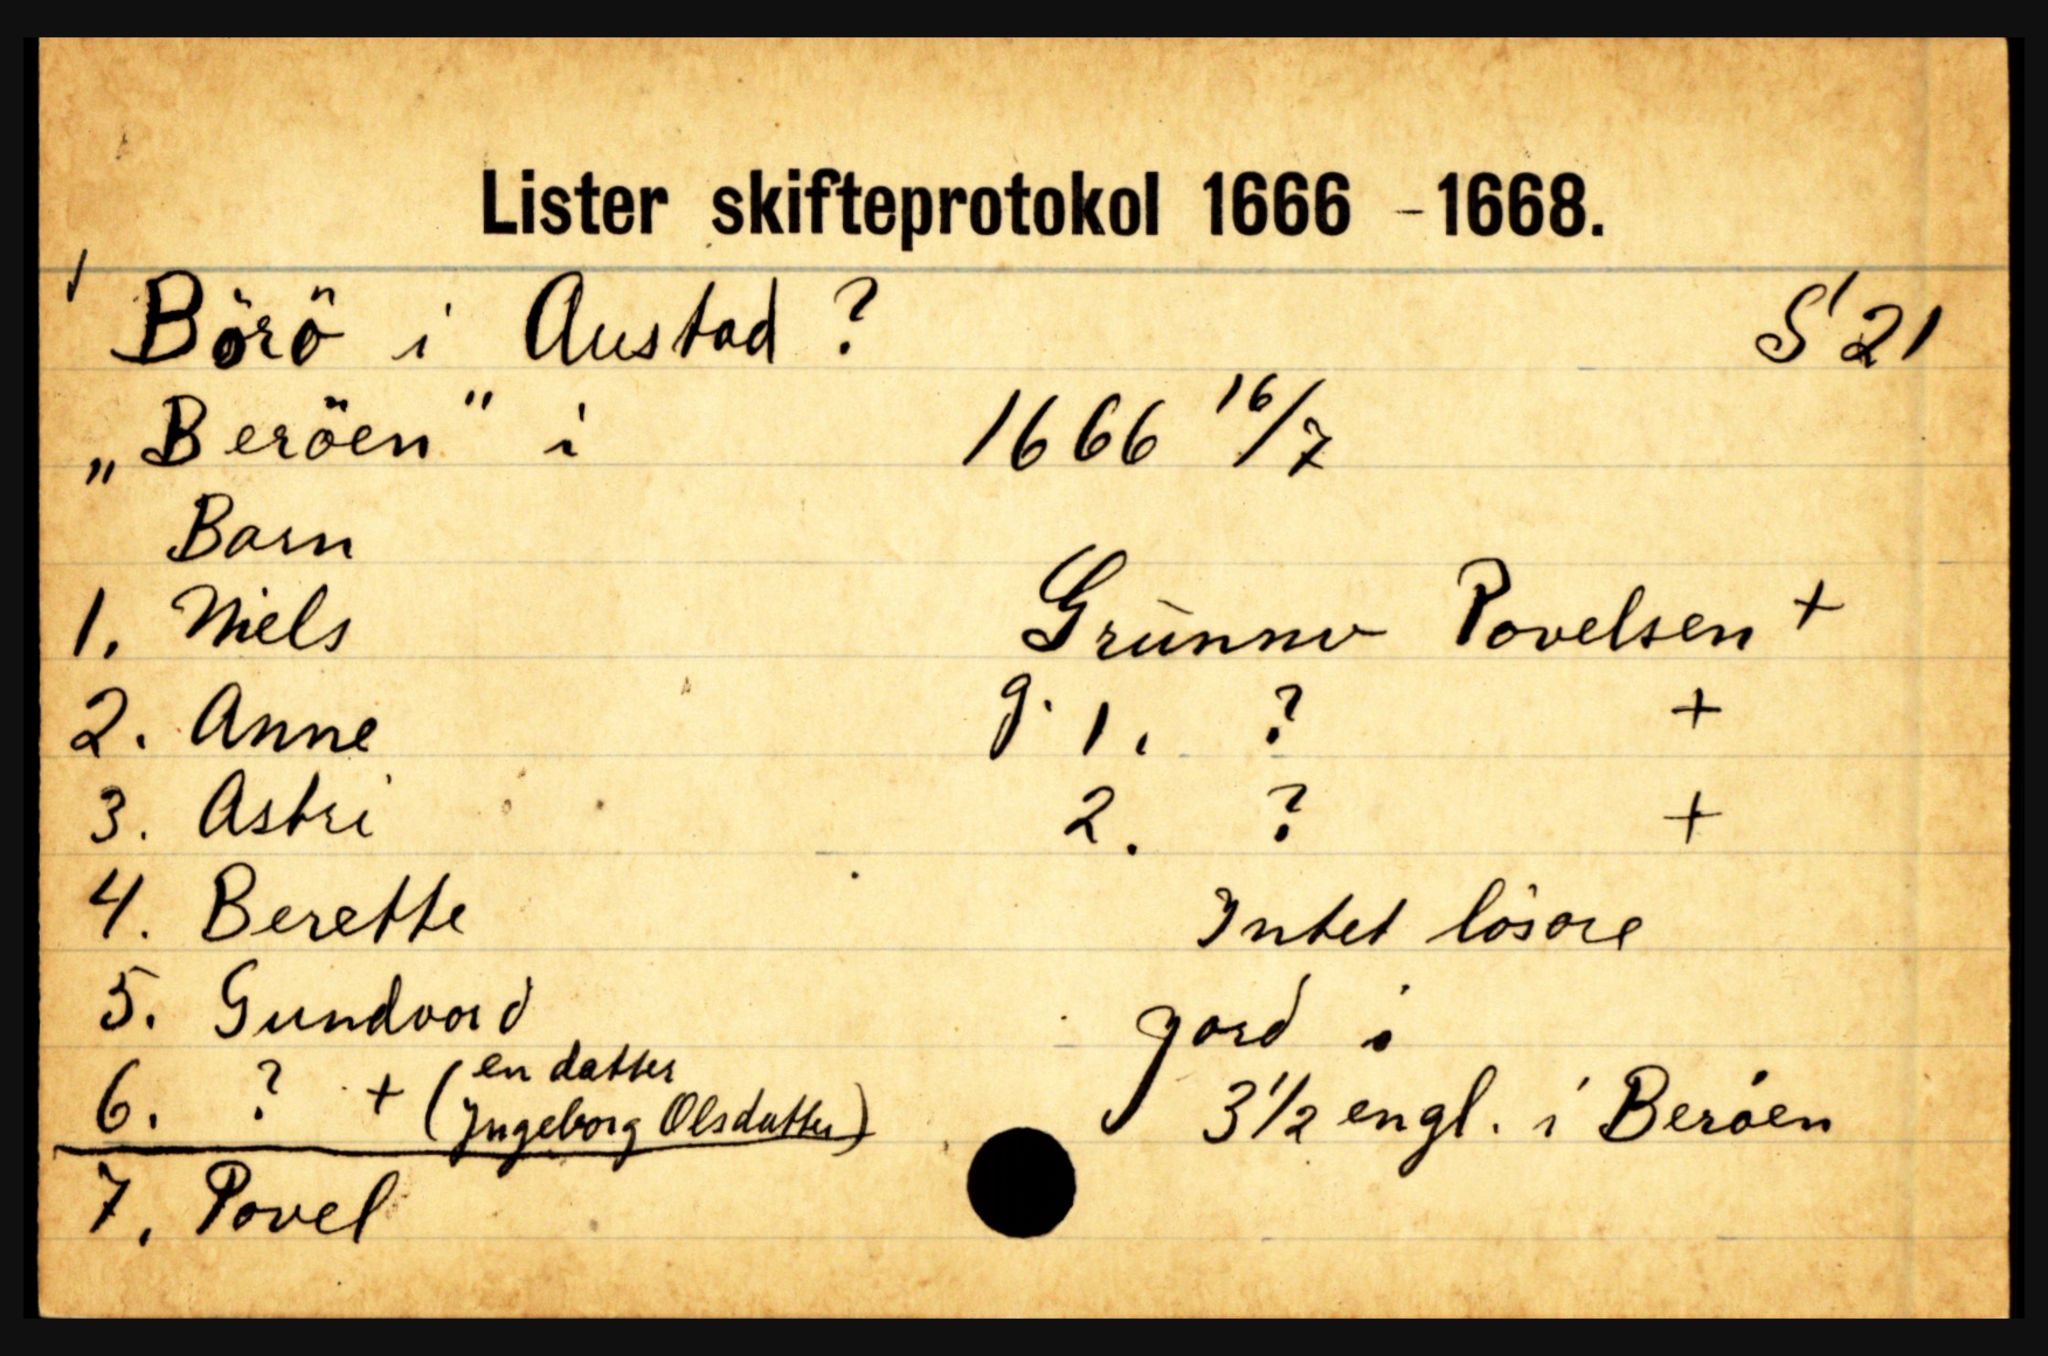 Lister skifteprotokol 1666 - 1668.
Börö i Austad ? S 21
„Beröen" i 1666 16/7
Barn
1. Niels Grunnv Povelsen +
2. Anne g. 1. ? +
3. Astri 2. ? +
4. Berette Intet lösöre
5. Gundvord jord i
6. ? + (en datter
Ingeborg Olsdatter) 3 1/2 engl. i Beröen
7. Povel